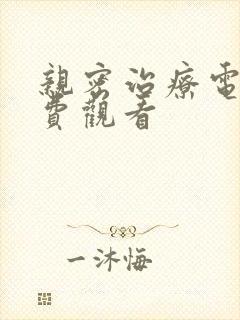 親密治療電
費觀看
一沐悔